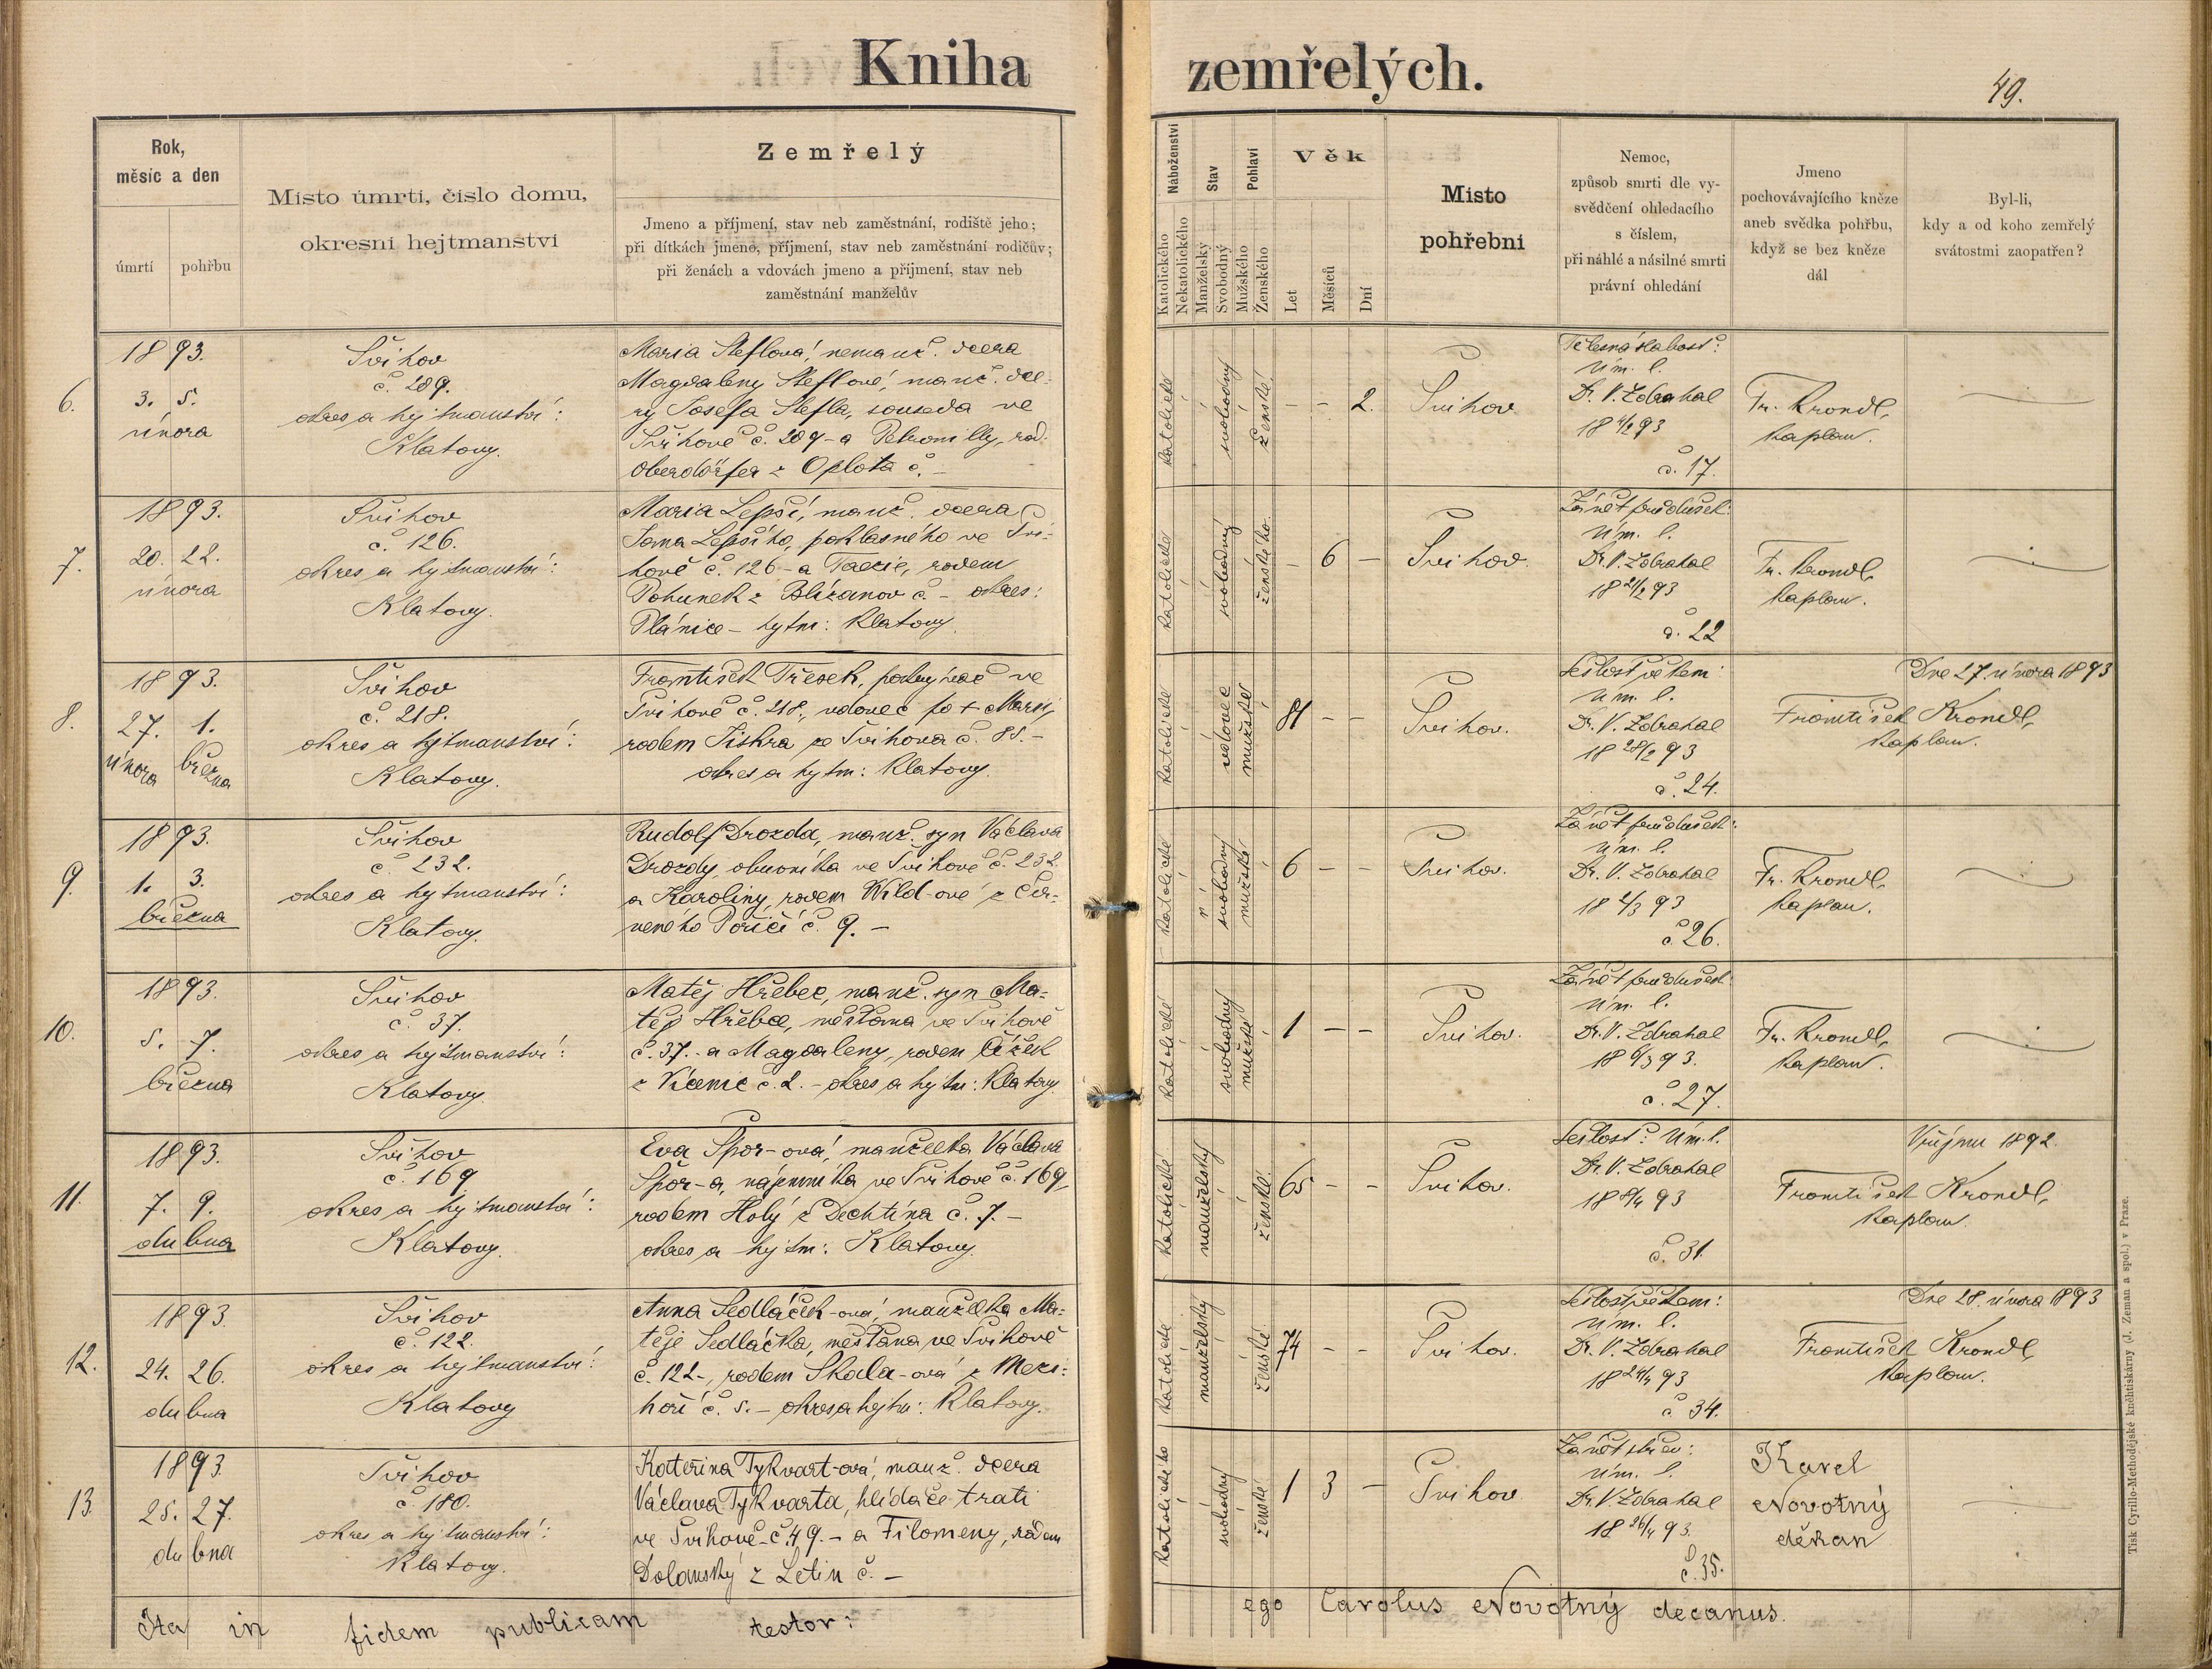 Kniha zemřelých.
49.
Rok,
měsíc a den
úmrtí
pohřbu
Místo úmrtí, číslo domu,
okresní hejtmanství
Zemřelý
Jmeno a příjmení, stav neb zaměstnání, rodiště jeho;
při dítkách jmeno, příjmení, stav neb zaměstnání rodičův;
při ženách a vdovách jmeno a příjmení, stav neb
zaměstnání manželův
Náboženství
Katolického
Nekatolického
Stav
Manželský
Svobodný
Pohlaví
Mužského
Ženského
Věk
Let
Měsíců
Dní
Místo
pohřební
Nemoc,
způsob smrti dle vy-
svědčení ohledacího
s číslem,
při náhlé a násilné smrti
právní ohledání
Jmeno
pochovávajícího kněze
aneb svědka pohřbu,
když se bez kněze
dál
Byl-li,
kdy a od koho zemřelý
svátostmi zaopatřen?
6.
1893.
3. 5.
února
Švihov
č. 209.
okres a hejtmanství:
Klatovy.
Maria Steflová, nemanž. dcera
Magdaleny Steflové, manž. dce-
ry Josefa Stefla, souseda ve
Švihově č. 209 - a Petronilly, rod.
Oberdörfer z Oplota č. -
katolické
svobodný
ženské.
- - 2.
Švihov
Tělesná slabost:
úm. l.
Dr. V. Zdrahal
18 4/2 93
č. 17.
Fr. Krondl,
kaplan.
7.
1893.
20. 22.
února
Švihov
č. 126.
okres a hejtmanství:
Klatovy.
Maria Lepší, manž. dcera
Jana Lepšího, poklasného ve Švi-
hově č. 126 - a Terezie, rodem
Pohunek z Bližanov č - okres:
Plánice - hejtm: Klatovy.
katolické
svobodný
ženského.
- 6 -
Švihov.
Zánět průdušek:
úm. l.
Dr. V. Zdrahal
18 21/2 93
č. 22
Fr. Krondl,
kaplan.
8.
1893.
27. 1.
února března
Švihov
č. 218.
okres a hejtmanství:
Klatovy.
František Třesek, ve
Švihově č. 218., vdovec po + Marii,
rodem Jiskra ze Švihova č. 85. -
okres a hejtm: Klatovy.
katolické
vdovec
mužské
81 - -
Švihov.
Sešlost věkem:
úm. l.
Dr. V. Zdrahal
18 28/2 93
č. 24.
Dne 27. února 1893
František Krondl,
kaplan.
9.
1893.
1. 3.
března
Švihov
č. 232.
okres a hejtmanství:
Klatovy.
Rudolf Drozda, manž. syn Václava
Drozdy, obuvníka ve Švihově č. 232.
a Karoliny, rodem Wild-ové z Čer-
veného Poříčí č. 9. -
katolické
svobodný
mužské
6 - -
Švihov.
Zánět průdušek:
úm. l.
Dr. V. Zdrahal
18 2/3 93
č. 26.
Fr. Krondl,
kaplan.
10.
1893.
5. 7.
března
Švihov
č. 37.
okres a hejtmanství:
Klatovy.
Matěj Hřebec, manž. syn Ma-
těje Hřebce, měšťana ve Švihově
č. 37. - a Magdaleny, rodem Čížek
z Vícenic č. 2. - okres a hejtm: Klatovy.
katolické
svobodný
mužské
1 - -
Švihov.
Zánět průdušek:
úm. l.
Dr. V. Zdrahal
18 6/3 93.
č. 27.
Fr. Krondl,
kaplan.
11.
1893.
7. 9.
dubna
Švihov
č. 169
okres a hejtmanství:
Klatovy.
Eva Špor-ová, manželka Václava
Špor-a, nájemníka ve Švihově č. 169,
rodem Holý z Dechtína č. 7. -
okres a hejtm: Klatovy.
katolické
manželský
ženské.
65 - -
Švihov.
Sešlost: úm. l.
Dr. V. Zdrahal
18 8/4 93
č. 31.
V říjnu 1892.
František Krondl,
kaplan.
12.
1893.
24. 26.
dubna
Švihov
č. 122.
okres a hejtmanství:
Klatovy
Anna Sedláček-ová, manželka Ma-
těje Sedláčka, měšťana ve Švihově
č. 122 -, rodem Skala-ová z Mezi-
hoří č. 5. - okres a hejtm: Klatovy.
katolické
manželský
ženské
74 - -
Švihov.
Sešlost věkem:
úm. l.
Dr. V. Zdrahal
18 24/4 93
č. 34.
Dne 28. února 1893
František Krondl,
kaplan.
13.
1893.
25. 27.
dubna
Švihov
č. 180.
okres a hejtmanství:
Klatovy.
Kateřina Tykvart-ová, manž. dcera
Václava Tykvarta, hlídače trati
ve Švihově - č. 49. - a Filomeny, rodem
Dolanský z Letin č. -
katolického
svobodný
ženské
1 3 -
Švihov
Zánět střev:
úm. l.
Dr. V. Zdrahal
18 26/4 93.
č. 35.
Karel
Novotný
děkan
Ita in fidem publicam testor: ego Carolus Novotný decanus.
Tisk Cyrillo-Methodějské knihtiskárny (J. Zeman a spol.) v Praze.